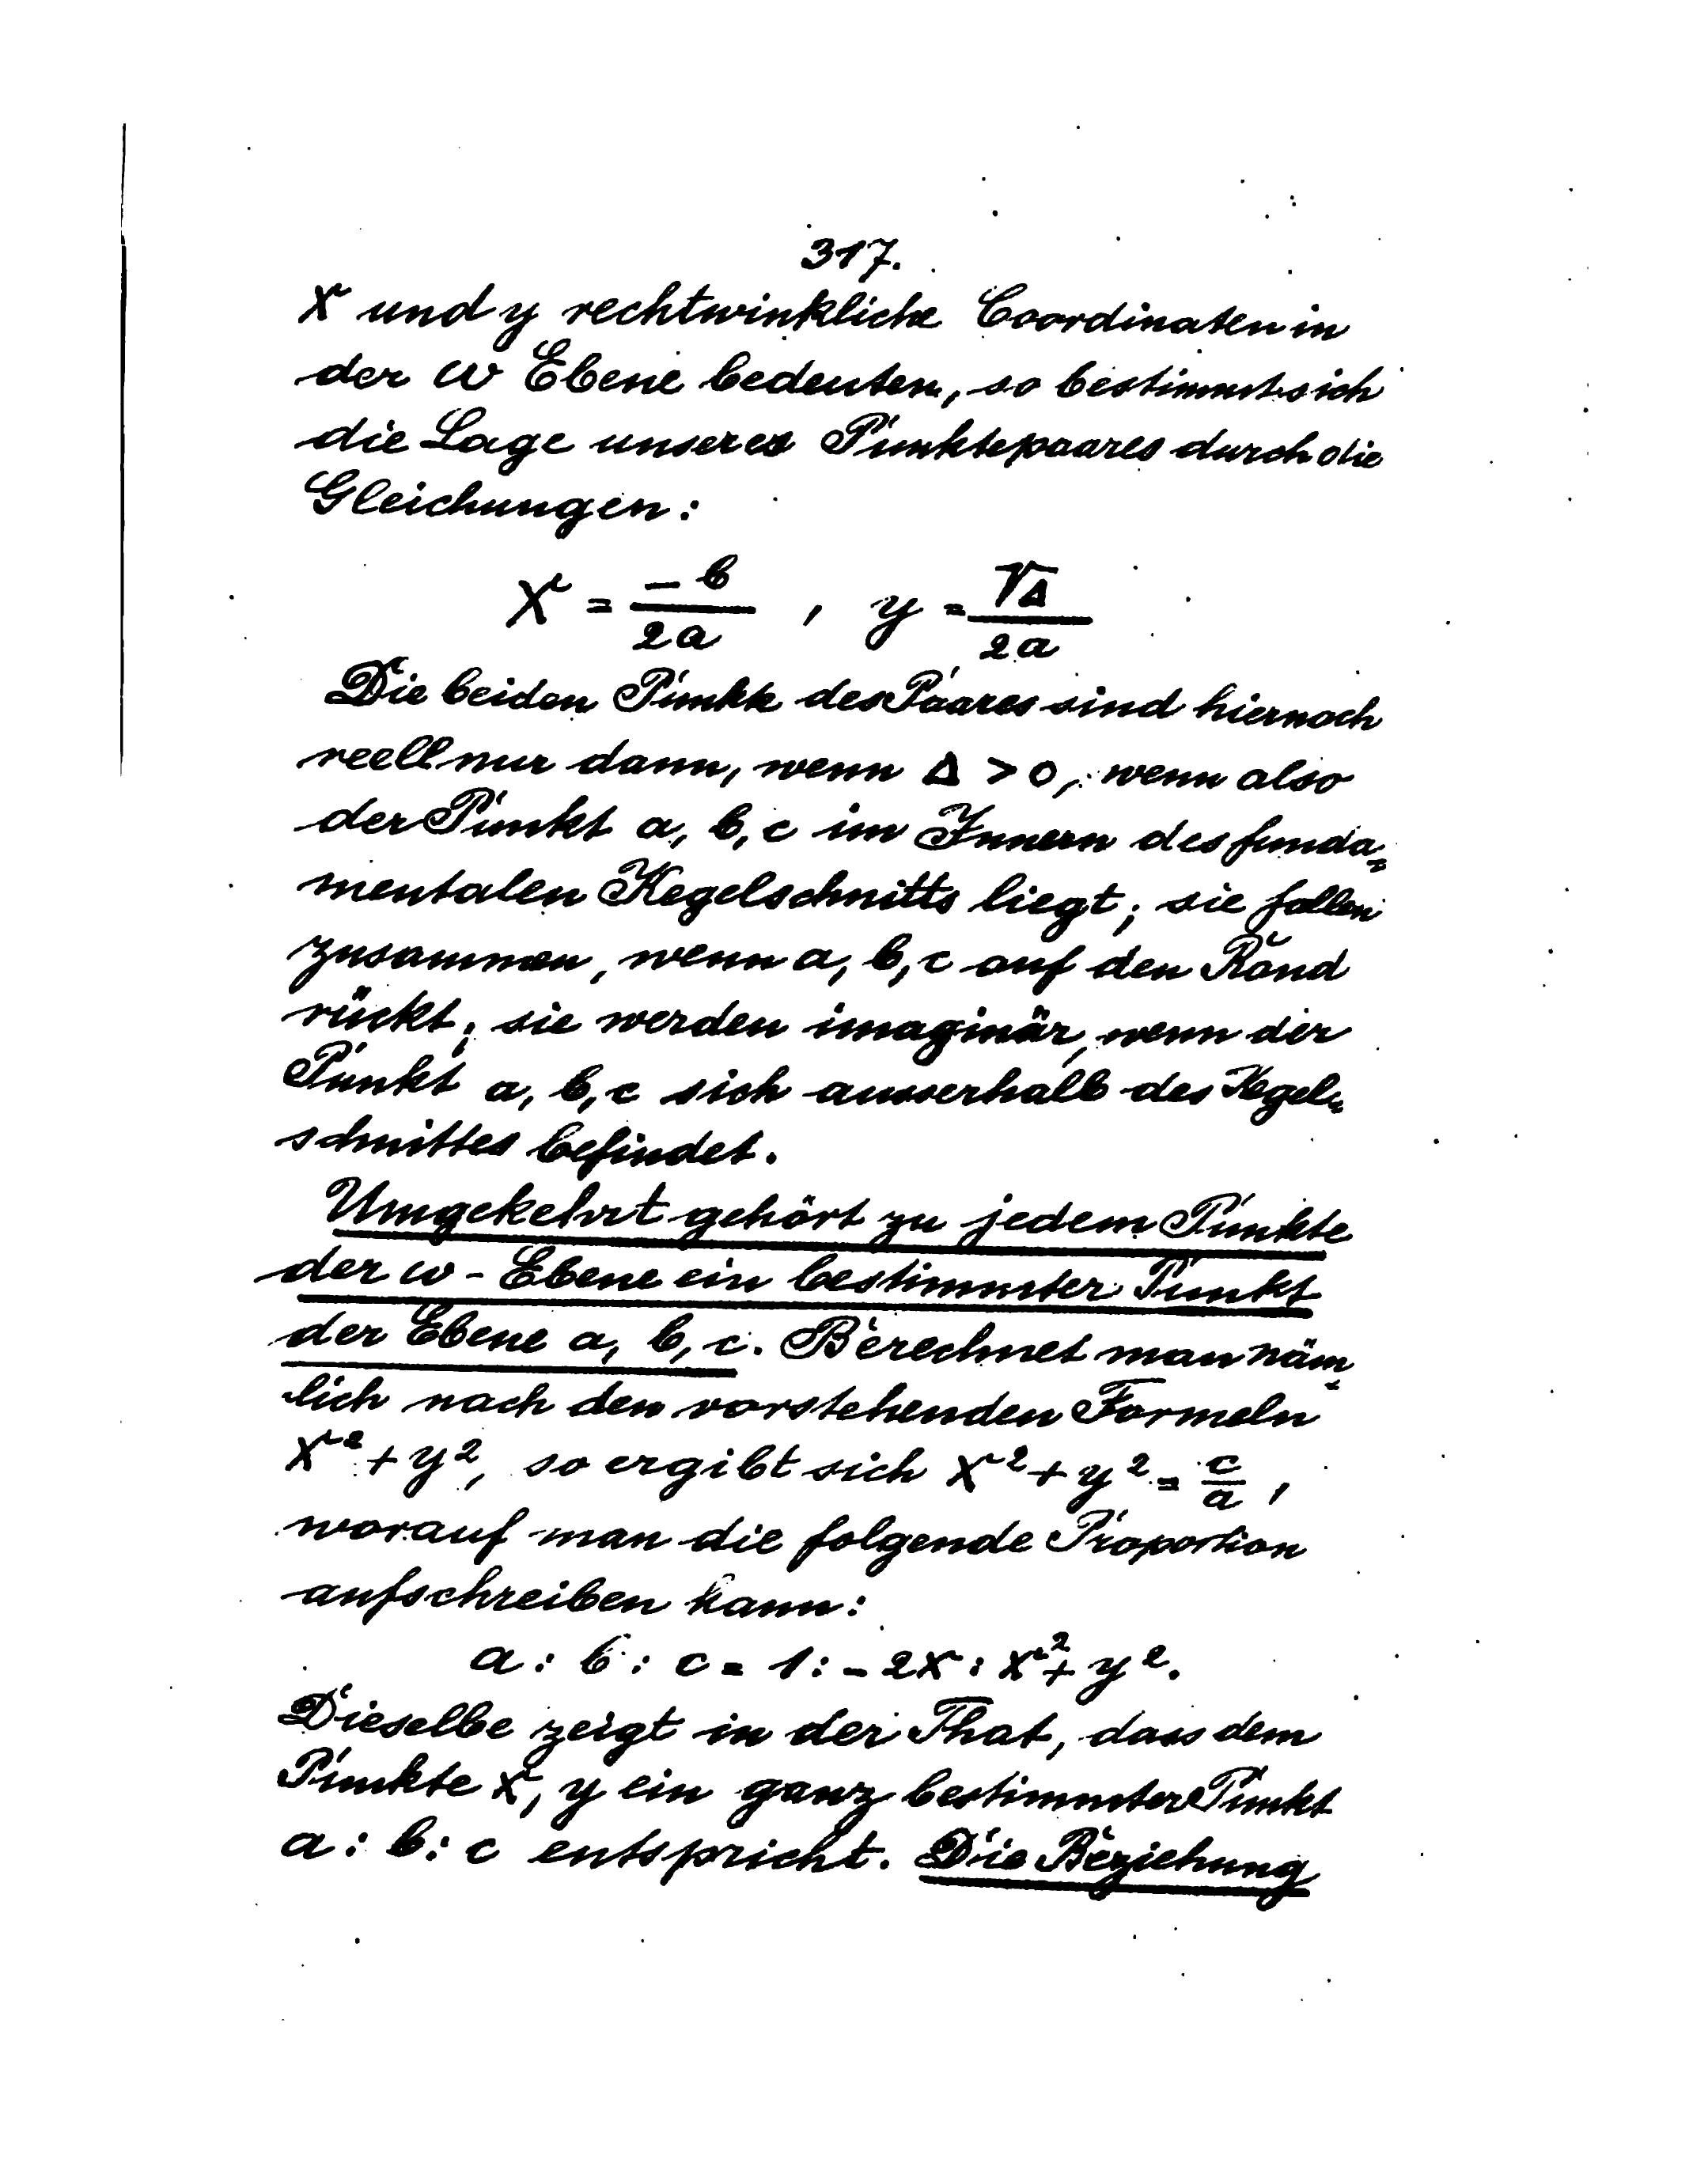 317.
x und y rechtwinkliche Coordinaten in
der ω Ebene bedeuten, so bestimmt sich
die Lage unseres Punktepaares durch die
Gleichungen:
x = -b/2a , y = √Δ/2a
Die beiden Punkte des Paares sind hiernach
reell nur dann, wenn Δ > 0, wenn also
der Punkt a, b, c im Innern des funda=
mentalen Kegelschnitts liegt; sie fallen
zusammen, wenn a, b, c auf den Rand
rückt; sie werden imaginär, wenn der
Punkt a, b, c sich ausserhalb des Kegel=
schnittes befindet.
Umgekehrt gehört zu jedem Punkte
der ω-Ebene ein bestimmter Punkt
der Ebene a, b, c. Berechnet man näm=
lich nach den vorstehenden Formeln
x² + y², so ergibt sich x² + y² = c/a ,
worauf man die folgende Proportion
aufschreiben kann:
a : b : c = 1 : -2x : x² + y².
Dieselbe zeigt in der That, dass dem
Punkte x, y ein ganz bestimmter Punkt
a : b : c entspricht. Die Beziehung